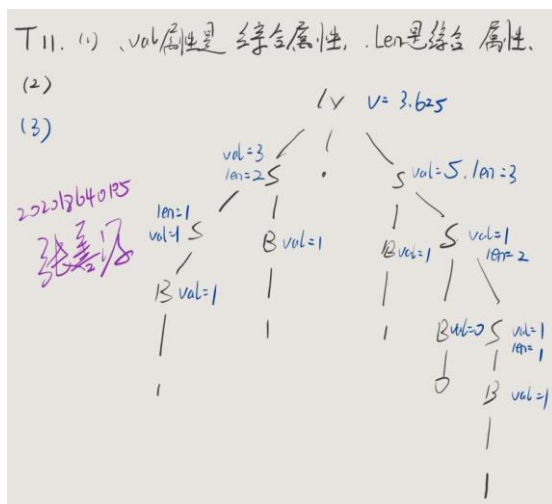 T11. (1) .val属性是 综合属性. .Len是综合 属性.
(2)
(3)
N V=3.625
val=3
len=2 S . S val=5. len=3
len=1
val=1 S B val=1 B val=1 S val=1
len=2
B val=1 1 1 B val=0 S val=1
len=1
1 0 B val=1
1